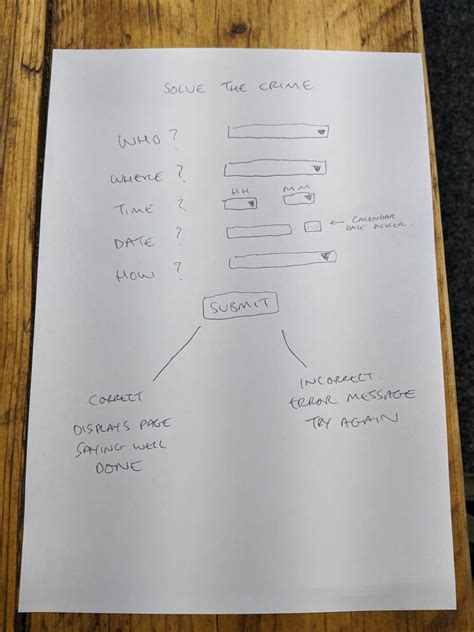 SOLVE THE CRIME
WHO ?
WHERE ?
HH MM
TIME ?
DATE ? ← CALENDAR
DATE PICKER.
HOW ?
SUBMIT
CORRECT
DISPLAYS PAGE
SAYING WELL
DONE
INCORRECT.
ERROR MESSAGE
TRY AGAIN